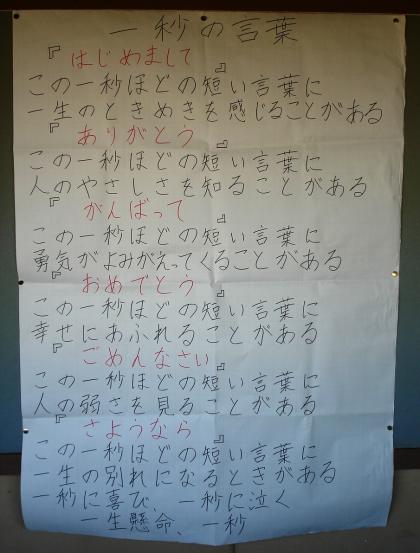 一秒の言葉
『はじめまして』
この一秒ほどの短い言葉に
一生のときめきを感じることがある
『ありがとう』
この一秒ほどの短い言葉に
人のやさしさを知ることがある
『がんばって』
この一秒ほどの短い言葉に
勇気がよみがえってくることがある
『おめでとう』
この一秒ほどの短い言葉に
幸せにあふれることがある
『ごめんなさい』
この一秒ほどの短い言葉に
人の弱さを見ることがある
『さようなら』
この一秒ほどの短い言葉に
一生の別れになるときがある
一秒に喜び、一秒に泣く
一生懸命、一秒